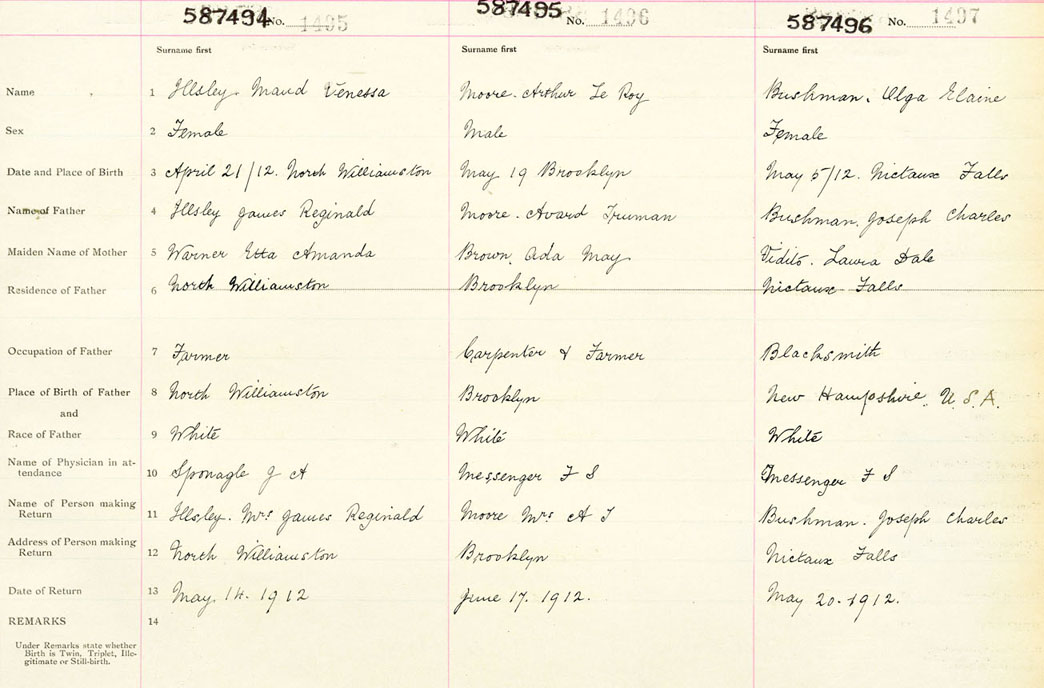 587494 No. 1495 587495 No. 1496 587496 No. 1497
Surname first Surname first Surname first
Name 1 Illsley. Maud Venessa Moore. Arthur Le Roy Bushman. Olga Elaine
Sex 2 Female Male Female
Date and Place of Birth 3 April 21/12. North Williamston May 19 Brooklyn May 5/12. Nictaux Falls
Name of Father 4 Illsley James Reginald Moore. Avard Truman Bushman. Joseph Charles
Maiden Name of Mother 5 Warner Etta Amanda Brown. Ada May Vidito. Laura Dale
Residence of Father 6 North Williamston Brooklyn Nictaux Falls
Occupation of Father 7 Farmer Carpenter & Farmer Blacksmith
Place of Birth of Father 8 North Williamston Brooklyn New Hampshire. U.S.A.
and
Race of Father 9 White White White
Name of Physician in at-
tendance 10 Sponagle J A Messenger F S Messenger F S
Name of Person making
Return 11 Illsley. Mrs James Reginald Moore Mrs A T Bushman. Joseph Charles
Address of Person making
Return 12 North Williamston Brooklyn Nictaux Falls
Date of Return 13 May. 14. 1912 June 17. 1912. May 20. 1912.
REMARKS 14
Under Remarks state whether
Birth is Twin, Triplet, Ille-
gitimate or Still-birth.